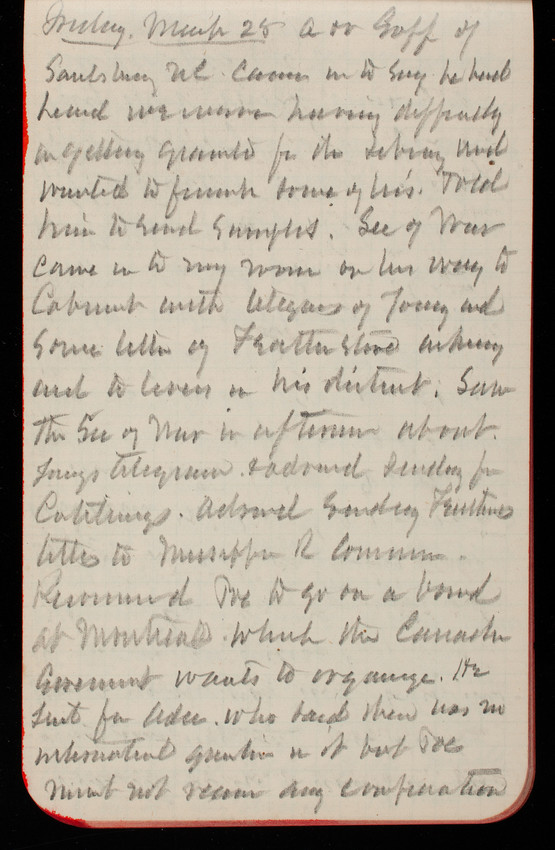 Friday, March 25 A Mr Goff of
Saulsbury N.C. came in to say he had
heard we were having difficulty
in getting granite for the Library and
wanted to furnish some of his. Told
him to send samples. Sec of War
came in to my room on his way to
Cabinet with telegrams of and
some letter of Featherstone asking
aid to levees in his district. Saw
the Sec of War in afternoon about
telegram & advised sending for
Catchings. Advised sending
letter to Mississippi R Commn.
Recommend Poe to go on a board
at Montreal which the Canada
Government wants to organize. He
sent for Adee who said there was no
international question in it but Poe
must not receive any compensation